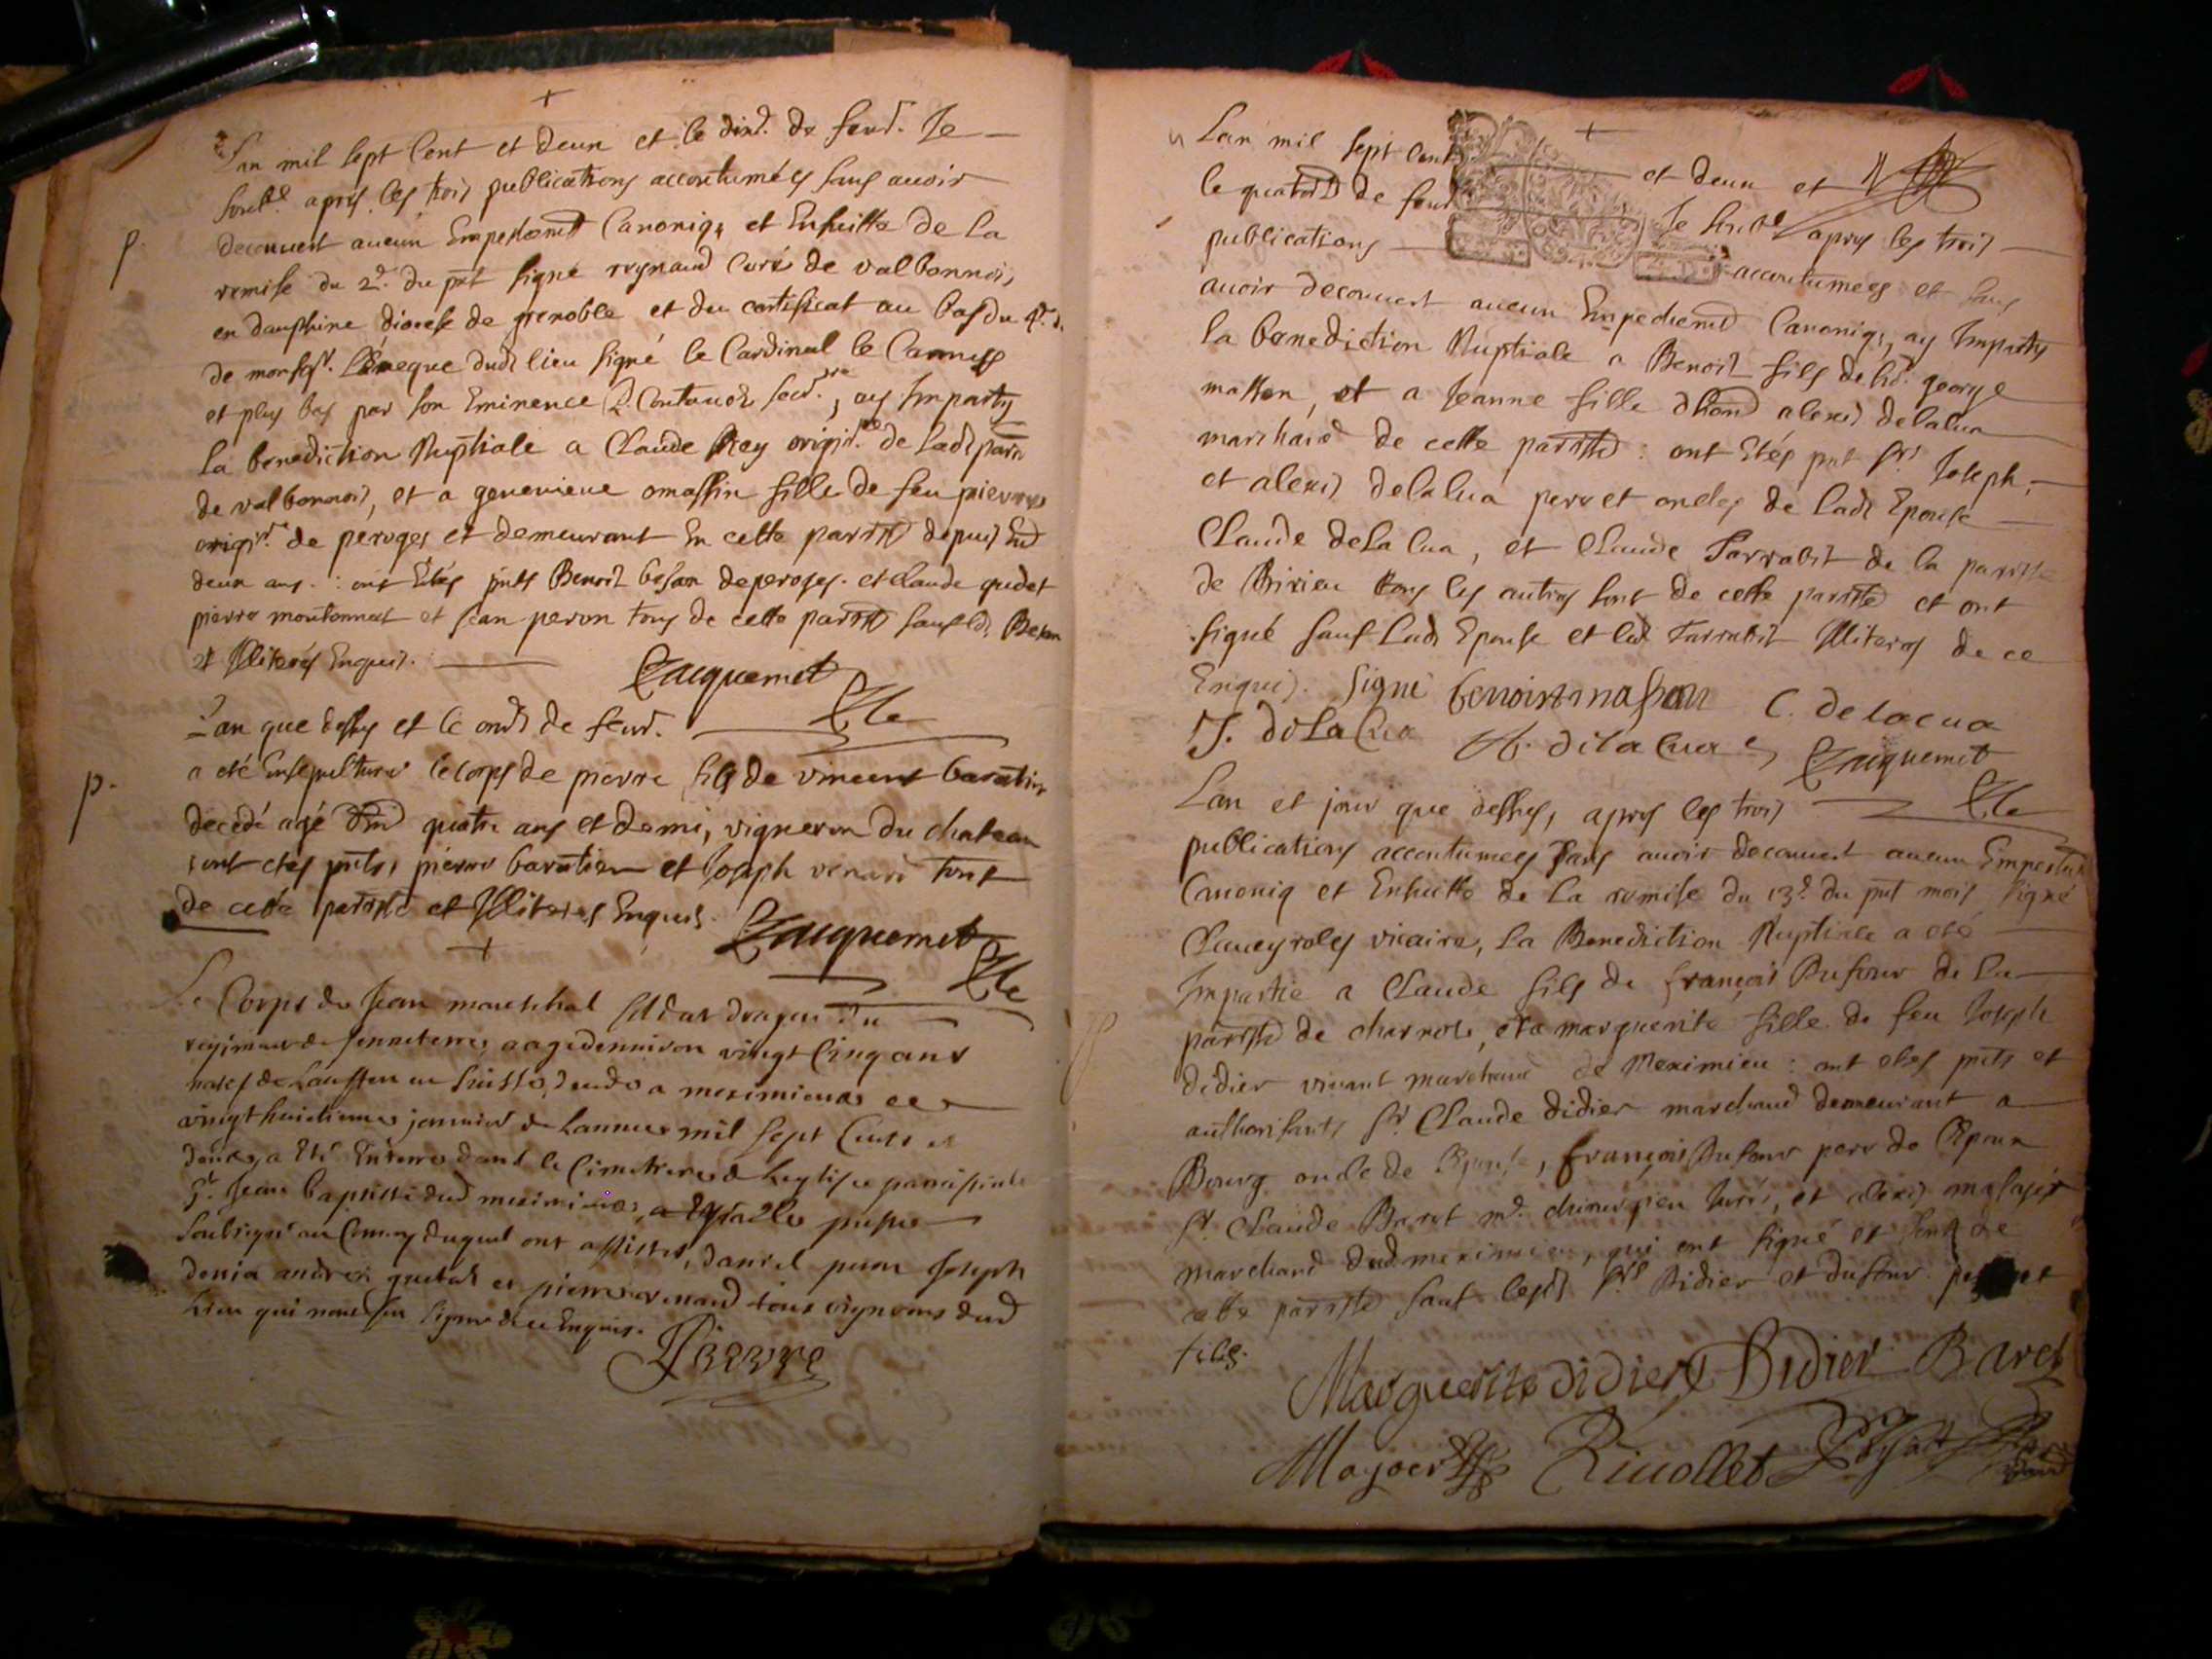 Lan mil sept Cent et deux et le dixe. de feur. Je
soubné. apres les trois publications accoutumées sans avoir
decouvert aucun Empechemt Canoniq; et Ensuitte de La
remise du 2e. du pnt signé reynaud Curé de valbonnois,
en dauphine diocese de grenoble et du certificat au bas du
de monsgr. L'Eveque dudt lieu signé le Cardinal le Camus
et plus bas par son Eminence secre., ay Imparty
la benediction Nuptiale a Claude Rey origire. de ladt parr
de valbonnois, et a genevieve omassin fille de feu pierre
origire. de peroges et demeurant En cette paroisse depuis
deux ans : ont Etés pnts Benoit beson de peroges. et Claude gudet
pierre moutonnat et Jean peron tous de cette paroisse sauf ld. Beson
et Illiterés Enquis.
Jacquemet
Lan que dessus et le onze de feur.
a eté Ensepulturé le corps de pierre fils de vincent baratin
decedé agé d'Env quatre ans et demi, vigneron du chateau
ont etés pnts, pierre baratin et Joseph venard tout
de cette paroisse et Illiterés Enquis.
Jacquemet
Le Corps de Jean mareschal soldat dragon du
regiment de senneterre, aagé denviron vingt Cinq ans
natif de Laussan en suisse, decedé a meximieux le
vingt huictieme janvier de Lannee mil sept Cents et
deux, a Eté Enterré dans le Cimetiere de Leglise parroissiale
St. Jean baptiste dud meximieux,
soubsigné au Convoy duquel ont assistés, daniel peron Joseph
denia andrea gudet et pierre venard tous vignerons dud
Lieu qui nont sceu signer de ce Enquis.
Lan mil sept Cent et deux et
le quatorze de feur Je soubné apres les trois
publications accoutumees et sans
avoir decouvert aucun Empechemt Canoniq;, ay Imparty
la benediction Nuptiale a Benoit fils de george
masson, et a Jeanne fille d'hond alexis delalua
marchand de cette paroisse : ont Etés pnt Srs Joseph,
et alexis delalua pere et oncles de ladt Epouse
Claude dela lua, et Claude Tarrabit de la paroisse
de Birieu tous les autres sont de cette paroisse et ont
signé sauf Ladt Epouse et led Tarrabit Illiterés de ce
Enquis. signé benoist masson C. de lacua
J. dela Cua A. dila Cua Jacquemet
Lan et jour que dessus, apres les trois
publications accoutumees sans avoir decouvert aucun Empechemt
Canoniq et Ensuitte de La remise du 13e. du pnt mois signé
Claveyroles vicaire, La Benediction Nuptiale a eté
Impartie a Claude fils de françois Dufour de La
paroisse de charnoz, et a marguerite fille de feu Joseph
didier vivant marchand de Meximieu : ont etés pnts et
authorisants sr. Claude didier marchand demeurant a
Bourg oncle de Epouse, françois Dufour pere de l'Epoux
sr. Claude Baret md. chirurgien Juré, et alexis
marchand dud meximieu, qui ont signé et sont de
cette paroisse sauf lesdt Srs Didier et dufour
Marguerite didiere Didier Baret
Mayoer Rivollet